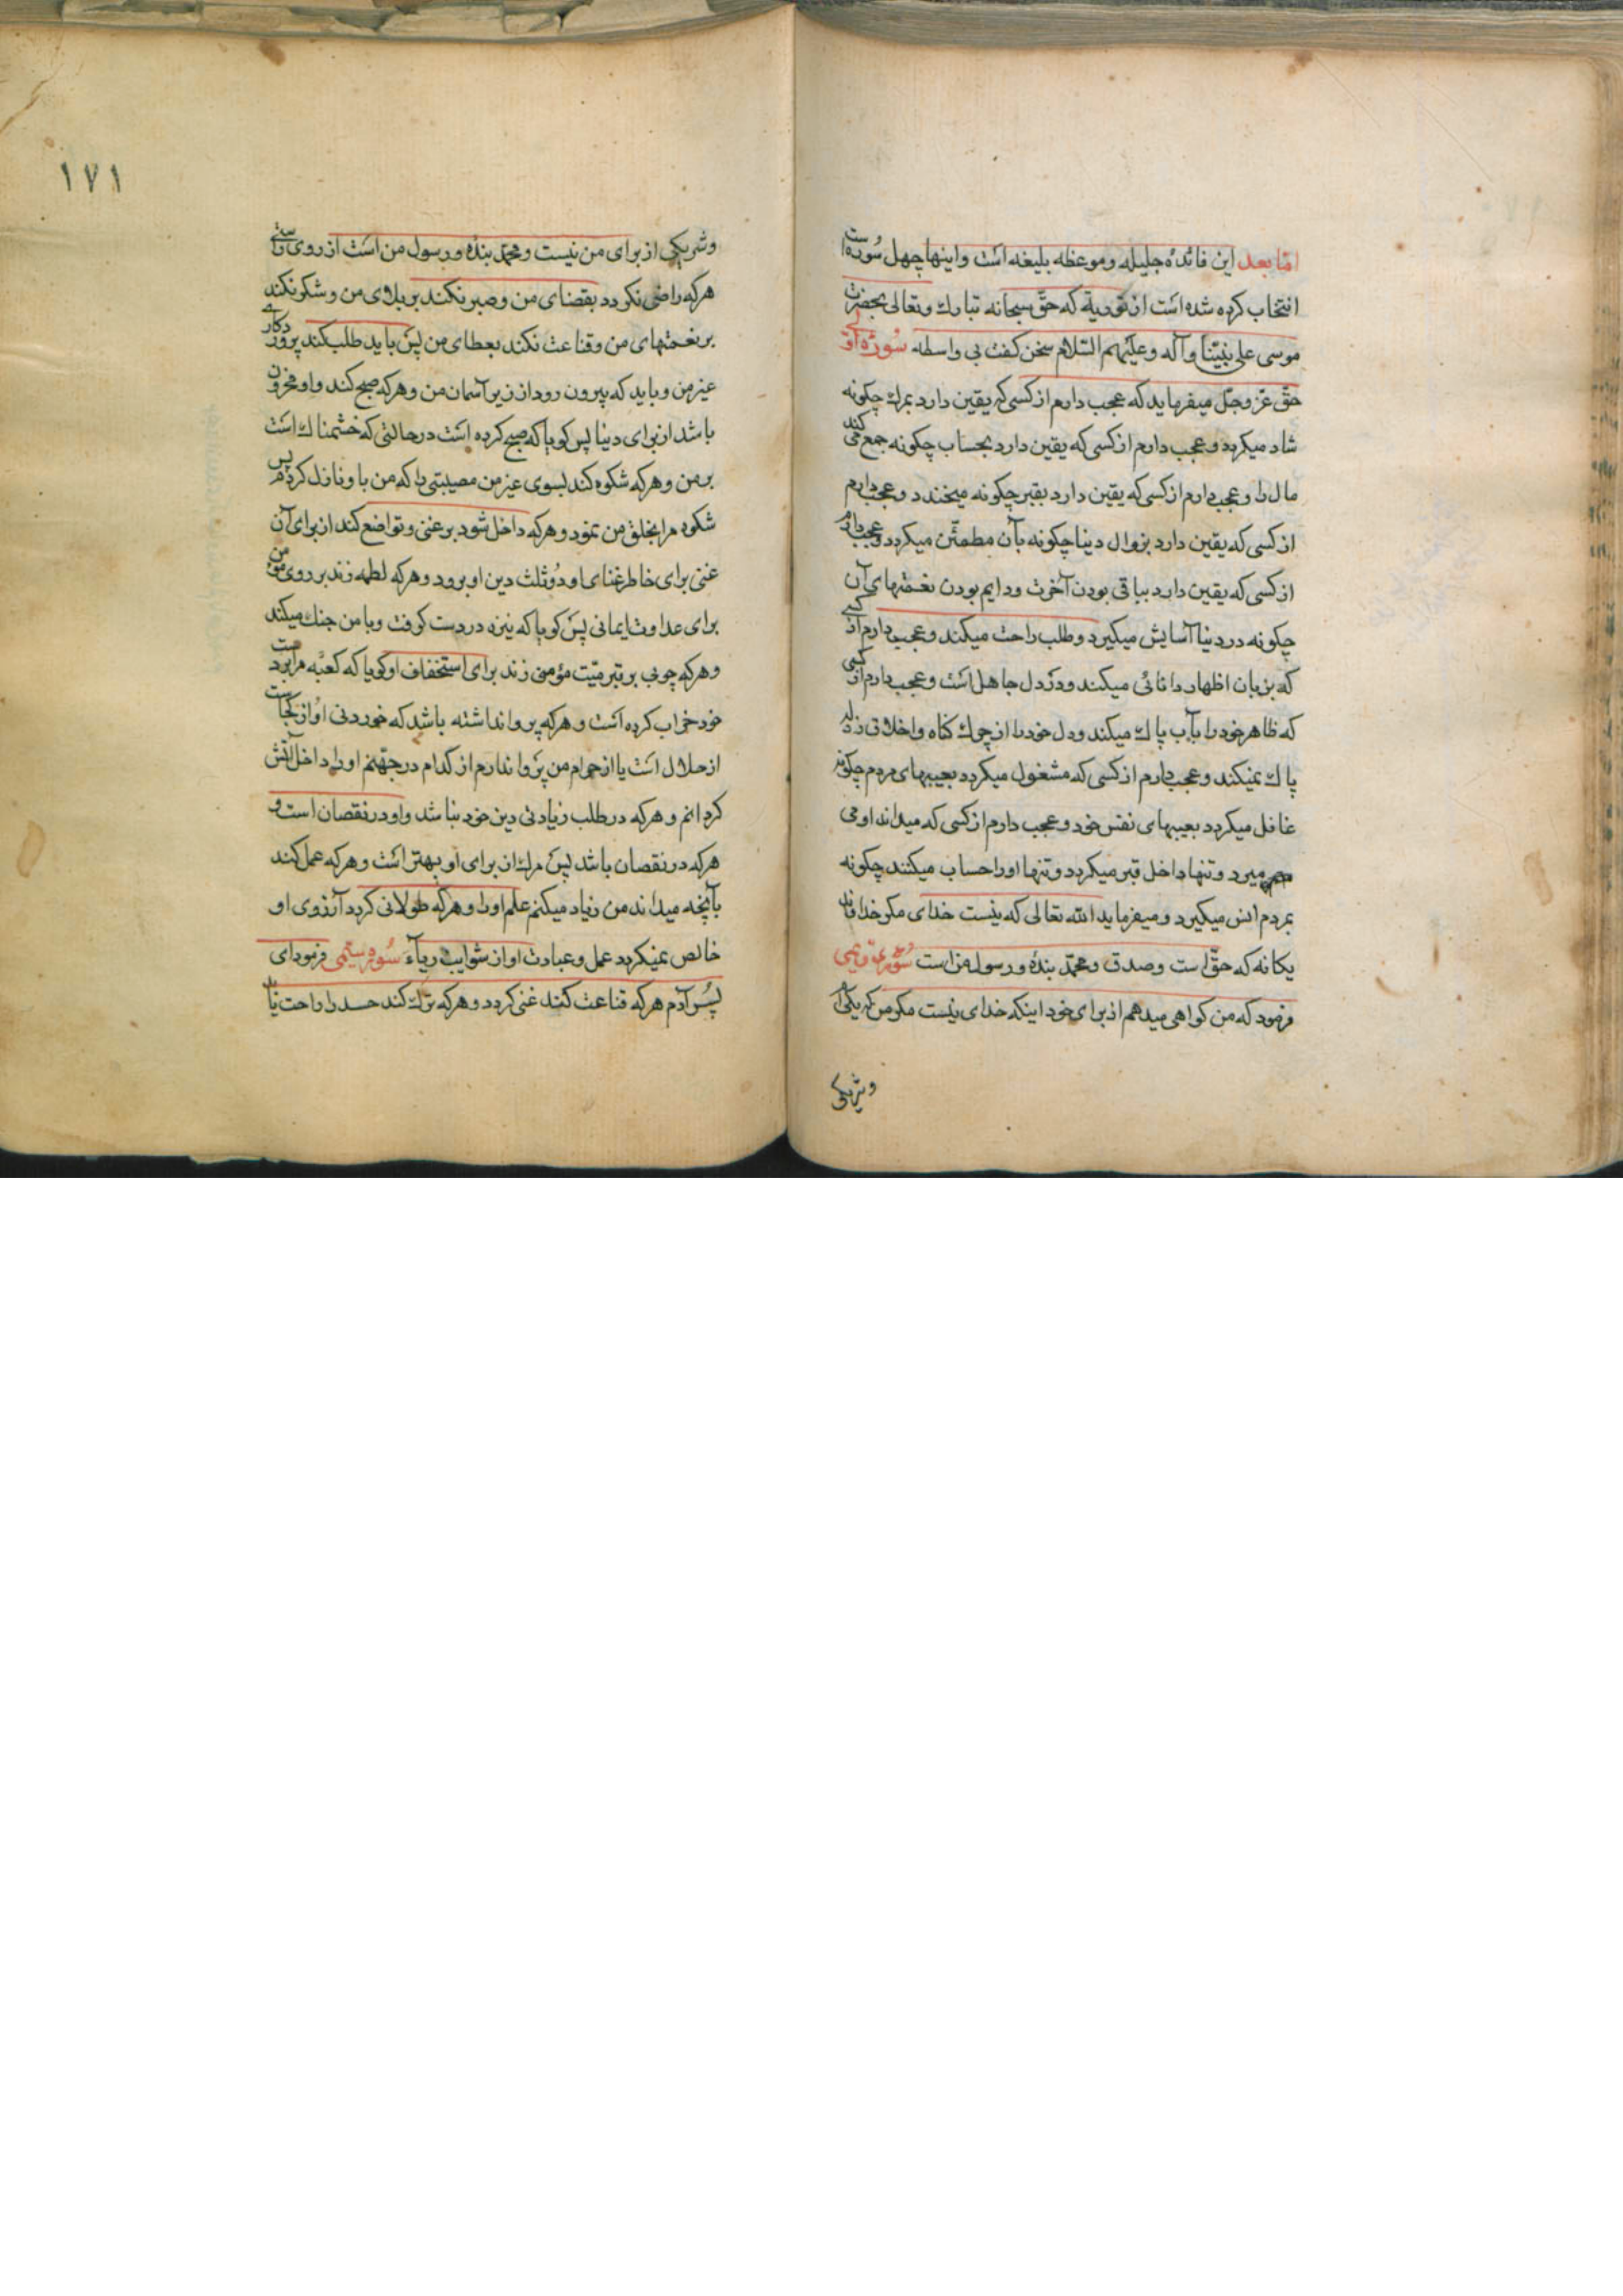 امّا بعد این فائدهٔ جلیله و موعظه بلیغه است و اینها چهل سُوره است و
انتخاب کرده شده است از توریة که حقّ سبحانه تبارك وتعالی بحضرت
موسی علی نبیّنا وآله وعلیهم السّلام سخن کفت بی واسطه سُورهٔ اوّل
حقّ عزّ وجلّ میفرماید که عجب دارم از کسی که یقین دارد بمرك چکونه
شاد میکردد وعجب دارم از کسی که یقین دارد بحساب چکونه جمع می کند
مال را وعجب دارم از کسی که یقین دارد بقبر چکونه میخندد وعجب دارم
از کسی که یقین دارد بزوال دینا چکونه بآن مطمئن میکردد وعجب دارم
از کسی که یقین دارد بباقی بودن آخرت ودایم بودن نعمتهای آن
چکونه در دنیا آسایش میکیرد وطلب راحت میکند وعجب دارم از کسی
که بزبان اظهار دانائی میکند ودر دل جاهل است وعجب دارم از کسی
که ظاهر خود را بآب پاك میکند ودل خود را از چرك کناه واخلاق رذله
پاك نمیکند وعجب دارم از کسی که مشغول میکردد بعیبهای مردم چکونه
غافل میکردد بعیبهای نفس خود وعجب دارم از کسی که میداند او می
میرد وتنها داخل قبر میکردد وتنها اورا حساب میکنند چکونه
بمردم انس میکیرد ومیفرماید الله تعالی که نیست خدای مکر خدا
یکانه که حقّ است وصدق ومحمّد بنده ورسول من است سُورهٔ دویمی
فرمود که من کواهی میدهم از برای خود اینکه خدای نیست مکر من که یکی ام
وشریکی
١٧١
وشریکی از برای من نیست ومحمّد بنده ورسول من است از روی راستی
هرکه راضی نکردد بقضای من وصبر نکند بر بلای من وشکر نکند
بر نعمتهای من وقناعت نکند بعطای من پس باید طلب کند پروردکاری
غیر من وباید که بیرون رود از زیر آسمان من وهرکه صبح کند واو محزون
باشد از برای دنیا پس کویا که صبح کرده است در حالتی که خشمناك است
بر من وهرکه شکوه کند بسوی غیر من مصیبتی را که من باو نازل کردم پس
شکوه مرا بخلق من نمود وهرکه داخل شود بر غنی وتواضع کند از برای آن
غنی برای خاطر غنای او دو ثلث دین او برود وهرکه لطمه زند بر روی مؤمن
برای عداوت ایمانی پس کویا که نیزه در دست کرفت وبا من جنك میکند
وهرکه چوبی بر قبر میّت مؤمنی زند برای استخفاف او کویا که کعبه مرا بدست
خود خراب کرده است وهرکه پروا نداشته باشد که خوردنی او از کجاست
از حلال است یا از حرام من پروا ندارم از کدام در جهنم اورا داخل آتش
کردانم وهرکه در طلب زیادتی دین خود نباشد واو در نقصان است و
هرکه در نقصان باشد پس مرك از برای او بهتر است وهرکه عمل کند
بآنچه میداند من زیاد میکنم علم اورا وهرکه طولانی کردد آرزوی او
خالص نمیکردد عمل وعبادت او از شوایب ریآء سُورهٔ سیّمی فرمود ای
پسر آدم هرکه قناعت کند غنی کردد وهرکه ترك کند حسد را راحت یابد